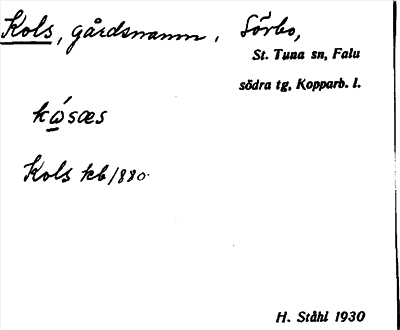 Kols, gårdsnamn, Sörbo,
St. Tuna sn, Falu
södra tg, Kopparb. l.
kώsæs
Kols kb 1880
H. Ståhl 1930